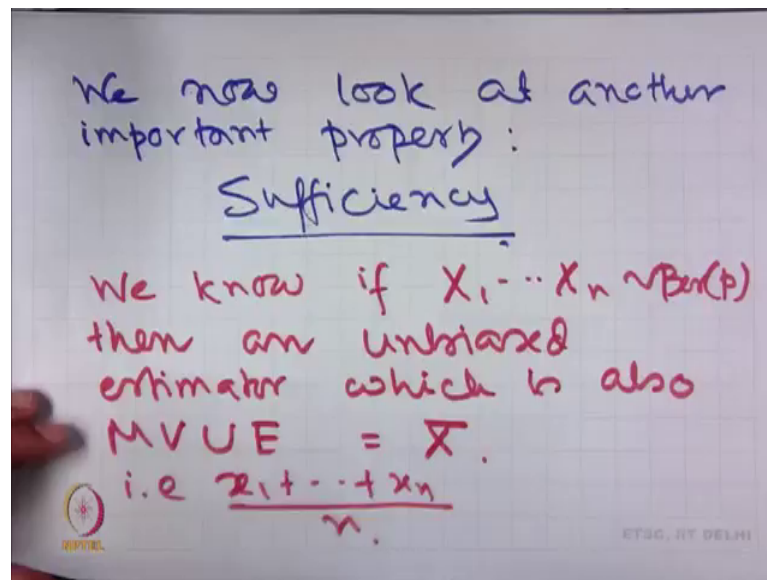 We now look at another
important property:
Sufficiency
We know if X₁ -.. Xₙ ~Ber(p)
then an unbiased
estimator which is also
MVUE = X̅.
i.e x₁ + -. + xₙ
n.
NPTEL
ETSC, IIT DELHI